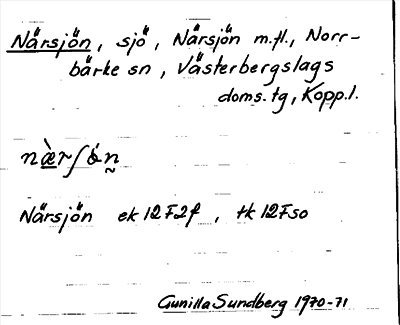 Närsjön, sjö, Närsjön m.fl., Norr-
bärke sn, Västerbergslags
doms. tg, Kopp. l.
Närsjön ek 12F2f, tk 12Fso
Gunilla Sundberg 1970-71